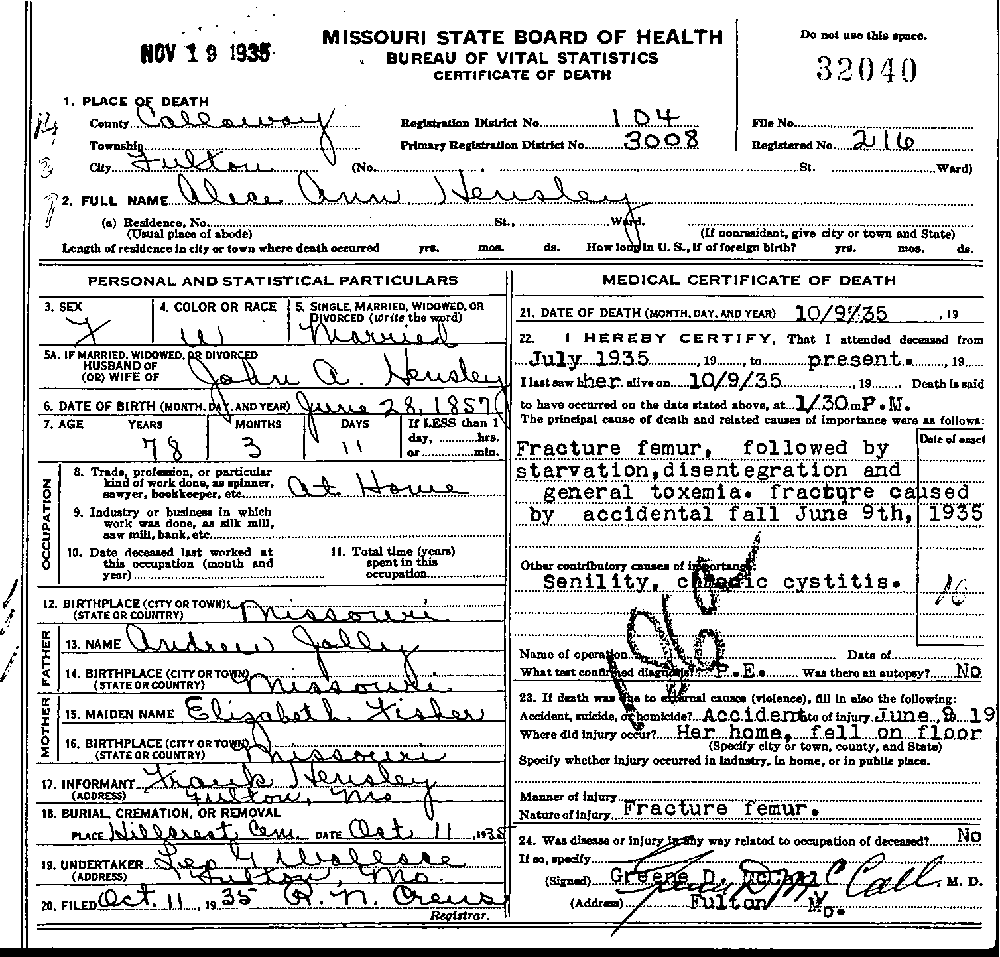 NOV 19 1935
MISSOURI STATE BOARD OF HEALTH
BUREAU OF VITAL STATISTICS
CERTIFICATE OF DEATH
Do not use this space.
32040
1. PLACE OF DEATH
County Callaway Registration District No. 104 File No.
Township Primary Registration District No. 3008 Registered No. 216
City Fulton (No. St. Ward)
2. FULL NAME Alice Ann Hensley
(a) Residence, No. St., Ward.
(Usual place of abode) (If nonresident, give city or town and State)
Length of residence in city or town where death occurred yrs. mos. ds. How long in U. S., if of foreign birth? yrs. mos. ds.
PERSONAL AND STATISTICAL PARTICULARS
3. SEX 4. COLOR OR RACE 5. SINGLE, MARRIED, WIDOWED, OR DIVORCED (write the word)
F W Married
5A. IF MARRIED, WIDOWED, OR DIVORCED
HUSBAND OF
(OR) WIFE OF John A. Hensley
6. DATE OF BIRTH (MONTH, DAY, AND YEAR) June 28, 1857
7. AGE YEARS MONTHS DAYS If LESS than 1 day, hrs. or min.
78 3 11
OCCUPATION
8. Trade, profession, or particular
kind of work done, as spinner,
sawyer, bookkeeper, etc. At Home
9. Industry or business in which
work was done, as silk mill,
saw mill, bank, etc.
10. Date deceased last worked at this occupation (month and year)
11. Total time (years) spent in this occupation
12. BIRTHPLACE (CITY OR TOWN) Missouri
(STATE OR COUNTRY)
FATHER
13. NAME Andrew Jolly
14. BIRTHPLACE (CITY OR TOWN) Missouri
(STATE OR COUNTRY)
MOTHER
15. MAIDEN NAME Elizabeth Fisher
16. BIRTHPLACE (CITY OR TOWN) Missouri
(STATE OR COUNTRY)
17. INFORMANT Frank Hensley
(ADDRESS) Fulton, Mo
18. BURIAL, CREMATION, OR REMOVAL
PLACE Hillcrest Cem. DATE Oct 11, 1935
19. UNDERTAKER Wallace
(ADDRESS) Fulton, Mo.
20. FILED Oct. 11, 1935 R. N. Crews
Registrar.
MEDICAL CERTIFICATE OF DEATH
21. DATE OF DEATH (MONTH, DAY, AND YEAR) 10/9/35, 19
22. I HEREBY CERTIFY, That I attended deceased from
July 1935, 19, to present., 19
I last saw her alive on 10/9/35, 19 Death is said
to have occurred on the date stated above, at 1/30m P.M.
The principal cause of death and related causes of importance were as follows:
Date of onset
Fracture femur, followed by
starvation,disentegration and
general toxemia. fracture caused
by accidental fall June 9th, 1935
Other contributory causes of importance:
Senility, chronic cystitis.
16
Name of operation Date of
What test confirmed diagnosis? P.E. Was there an autopsy? No
23. If death was due to external causes (violence), fill in also the following:
Accident, suicide, or homicide? Accident Date of injury June 9 19
Where did injury occur? Her home, fell on floor
(Specify city or town, county, and State)
Specify whether injury occurred in industry, in home, or in public place.
Manner of injury
Nature of injury Fracture femur.
24. Was disease or injury in any way related to occupation of deceased? No
If so, specify
(Signed) Greene D. McCall M. D.
(Address) Fulton Mo.